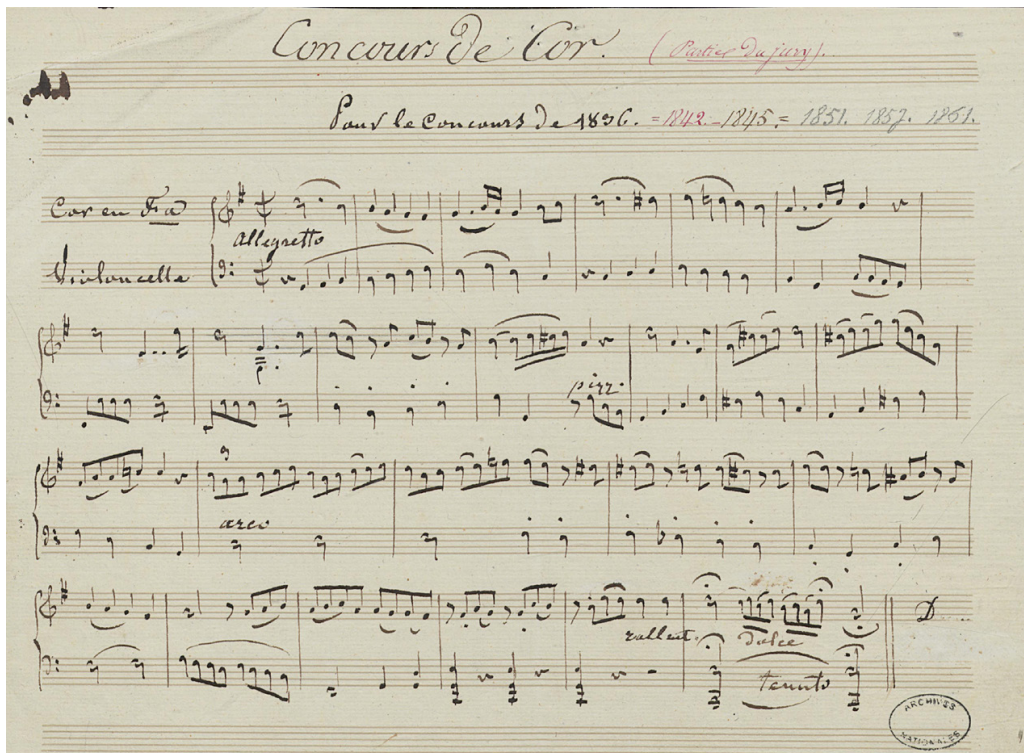 Concours de Cor. (Partie du jury).
Pour le Concours de 1836. = 1842. - 1845. = 1851. 1857. 1861.
Cor en Fa
Allegretto
Violoncelle
pizz.
arco
rallent. dulce
tenuto
D
ARCHIVES
NATIONALES